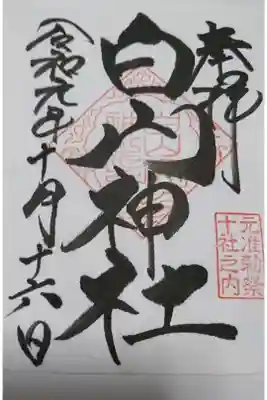 奉拝
元准勅祭
十社之内
白山神社
令和元年十月十六日